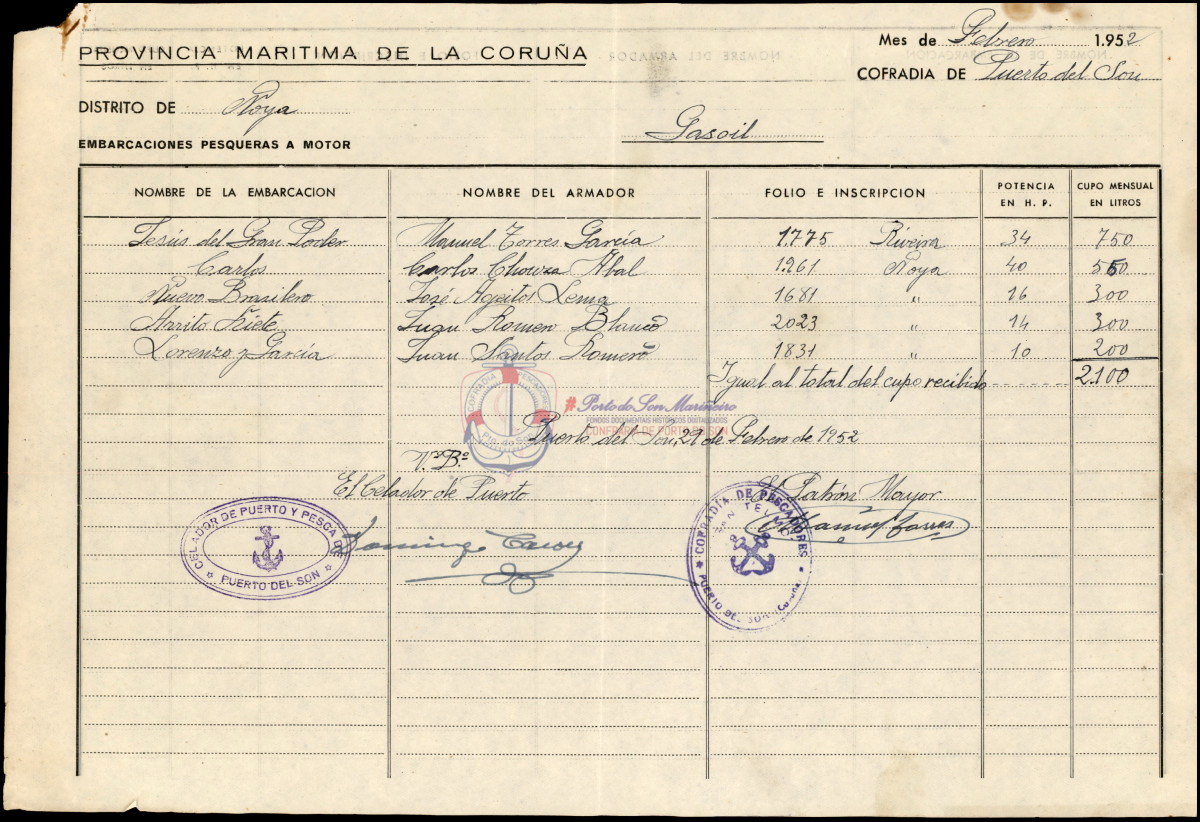 PROVINCIA MARITIMA DE LA CORUÑA
Mes de Febrero 1.952
COFRADIA DE Puerto del Son
DISTRITO DE Noya
Gasoil
EMBARCACIONES PESQUERAS A MOTOR
NOMBRE DE LA EMBARCACION NOMBRE DEL ARMADOR FOLIO E INSCRIPCION POTENCIA EN H. P. CUPO MENSUAL EN LITROS
Jesús del Gran Poder Manuel Torres García 1.775 Riveira 34 750
Carlos Carlos Chouza Abal 1.261 Noya 40 550
Nuevo Brasilero José Ageitos Lema 1681 " 16 300
Juan Romero Blanco 2023 " 14 300
Lorenzo y García Juan Santos Romero 1831 " 10 200
Igual al total del cupo recibido 2.100
#Porto do Son Mariñeiro
FONDOS DOCUMENTAIS HISTÓRICOS DIGITALIZADOS
CONFRARÍA DE PORTO DO SON
Puerto del Son, 29 de Febrero de 1952
Vº Bº
El Celador de Puerto El Patrón Mayor
CELADOR DE PUERTO Y PESCA DE
PUERTO DEL SON
COFRADIA DE PESCADORES
SAN TELMO
PUERTO DEL SON (Coruña)
Manuel Torres